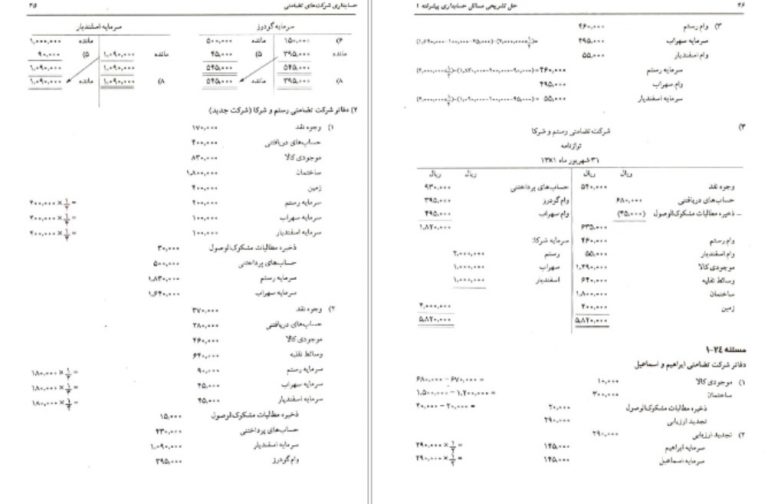 ۳۶ حل تشریحی مسائل حسابداری پیشرفته ۱
۳) وام رستم ۴۶۰,۰۰۰
سرمایه سهراب ۴۹۵,۰۰۰
وام اسفندیار ۵۵,۰۰۰
سرمایه رستم ۴۶۰,۰۰۰
وام سهراب ۴۹۵,۰۰۰
سرمایه اسفندیار ۵۵,۰۰۰
شرکت تضامنی رستم و شرکا
ترازنامه
۳۱ شهریور ماه ۱۳۸۱
ریال ریال ریال ریال
وجوه نقد ۵۴۰,۰۰۰ حساب‌های پرداختنی ۹۳۰,۰۰۰
حساب‌های دریافتنی ۶۸۰,۰۰۰ وام گودرز ۳۹۵,۰۰۰
ـ ذخیره مطالبات مشکوک‌الوصول (۴۵,۰۰۰) وام سهراب ۴۹۵,۰۰۰
۶۳۵,۰۰۰ ۱,۸۲۰,۰۰۰
وام رستم ۴۶۰,۰۰۰ سرمایه شرکا:
وام اسفندیار ۵۵,۰۰۰ رستم ۲,۰۰۰,۰۰۰
موجودی کالا ۱,۲۹۰,۰۰۰ سهراب ۱,۰۰۰,۰۰۰
وسائط نقلیه ۶۴۰,۰۰۰ اسفندیار ۱,۰۰۰,۰۰۰
ساختمان ۱,۸۰۰,۰۰۰
زمین ۴۰۰,۰۰۰ ۴,۰۰۰,۰۰۰
۵,۸۲۰,۰۰۰ ۵,۸۲۰,۰۰۰
مسئله ۲۴-۱
دفاتر شرکت تضامنی ابراهیم و اسماعیل
۱) موجودی کالا ۱۰,۰۰۰ ۶۸۰,۰۰۰ − ۶۷۰,۰۰۰ =
ساختمان ۳۰۰,۰۰۰ ۱,۵۰۰,۰۰۰ − ۱,۲۰۰,۰۰۰ =
ذخیره مطالبات مشکوک‌الوصول ۲۰,۰۰۰
تجدید ارزیابی ۲۹۰,۰۰۰
۲) تجدید ارزیابی ۲۹۰,۰۰۰
سرمایه ابراهیم ۱۴۵,۰۰۰ ۲۹۰,۰۰۰ × ۱/۲ =
سرمایه اسماعیل ۱۴۵,۰۰۰ ۲۹۰,۰۰۰ × ۱/۲ =
حسابداری شرکت‌های تضامنی
سرمایه گودرز سرمایه اسفندیار
۶) ۱۵۰,۰۰۰ مانده ۵۰۰,۰۰۰ مانده ۱,۰۰۰,۰۰۰
مانده ۳۹۵,۰۰۰ ۵) ۴۵,۰۰۰ مانده ۱,۰۹۰,۰۰۰ ۵) ۹۰,۰۰۰
۵۴۵,۰۰۰ ۵۴۵,۰۰۰ ۱,۰۹۰,۰۰۰ ۱,۰۹۰,۰۰۰
۸) ۳۹۵,۰۰۰ مانده ۸) ۱,۰۹۰,۰۰۰ مانده ۱,۰۹۰,۰۰۰
۷) دفاتر شرکت تضامنی رستم و شرکا (شرکت جدید)
۱) وجوه نقد ۱۷۰,۰۰۰
حساب‌های دریافتنی ۴۰۰,۰۰۰
موجودی کالا ۸۳۰,۰۰۰
ساختمان ۱,۸۰۰,۰۰۰
زمین ۴۰۰,۰۰۰
سرمایه رستم ۲۰۰,۰۰۰ = ۴۰۰,۰۰۰ × ۱/۲
سرمایه سهراب ۱۰۰,۰۰۰ = ۴۰۰,۰۰۰ × ۱/۴
سرمایه اسفندیار ۱۰۰,۰۰۰ = ۴۰۰,۰۰۰ × ۱/۴
ذخیره مطالبات مشکوک‌الوصول ۳۰,۰۰۰
حساب‌های پرداختنی ۵۰۰,۰۰۰
سرمایه رستم ۱,۸۳۰,۰۰۰
سرمایه سهراب ۱,۶۴۰,۰۰۰
۲) وجوه نقد ۳۷۰,۰۰۰
حساب‌های دریافتنی ۲۸۰,۰۰۰
موجودی کالا ۴۶۰,۰۰۰
وسائط نقلیه ۶۴۰,۰۰۰
سرمایه رستم ۹۰,۰۰۰ = ۱۸۰,۰۰۰ × ۱/۲
سرمایه سهراب ۴۵,۰۰۰ = ۱۸۰,۰۰۰ × ۱/۴
سرمایه اسفندیار ۴۵,۰۰۰ = ۱۸۰,۰۰۰ × ۱/۴
ذخیره مطالبات مشکوک‌الوصول ۱۵,۰۰۰
حساب‌های پرداختنی ۴۳۰,۰۰۰
سرمایه اسفندیار ۱,۰۹۰,۰۰۰
وام گودرز ۳۹۵,۰۰۰